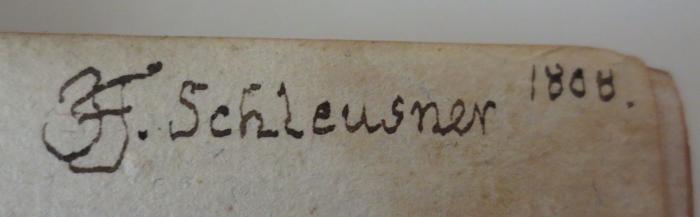 JF. Schleusner 1808.